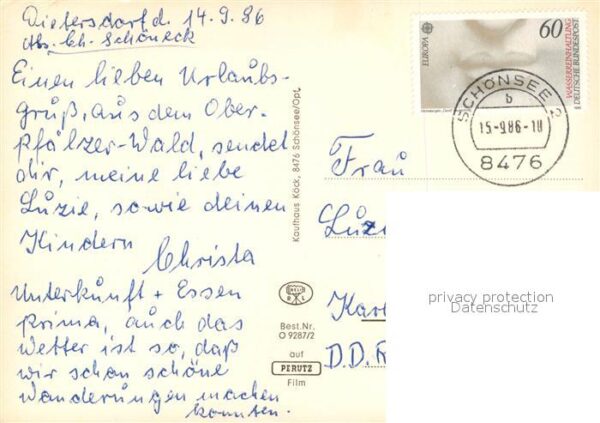 Dietersdorf d. 14.9.86
Schöneck
Einen lieben Urlaubs-
gruß, aus dem Ober-
pfälzer-Wald, sendet
dir, meine liebe
Luzie, sowie deinen
Kindern
Christa
Unterkunft + Essen
prima, auch das
Wetter ist so, daß
wir schon schöne
Wanderungen machen
konnten.
Kaufhaus Köck, 8476 Schönsee/Opf.
Best.Nr.
O 9287/2
auf
PERUTZ
Film
EUROPA
60
WASSERREINHALTUNG
DEUTSCHE BUNDESPOST
SCHÖNSEE 2
b
15.-9.86.-10
8476
Frau
Luzie
D.D.R
privacy protection
Datenschutz